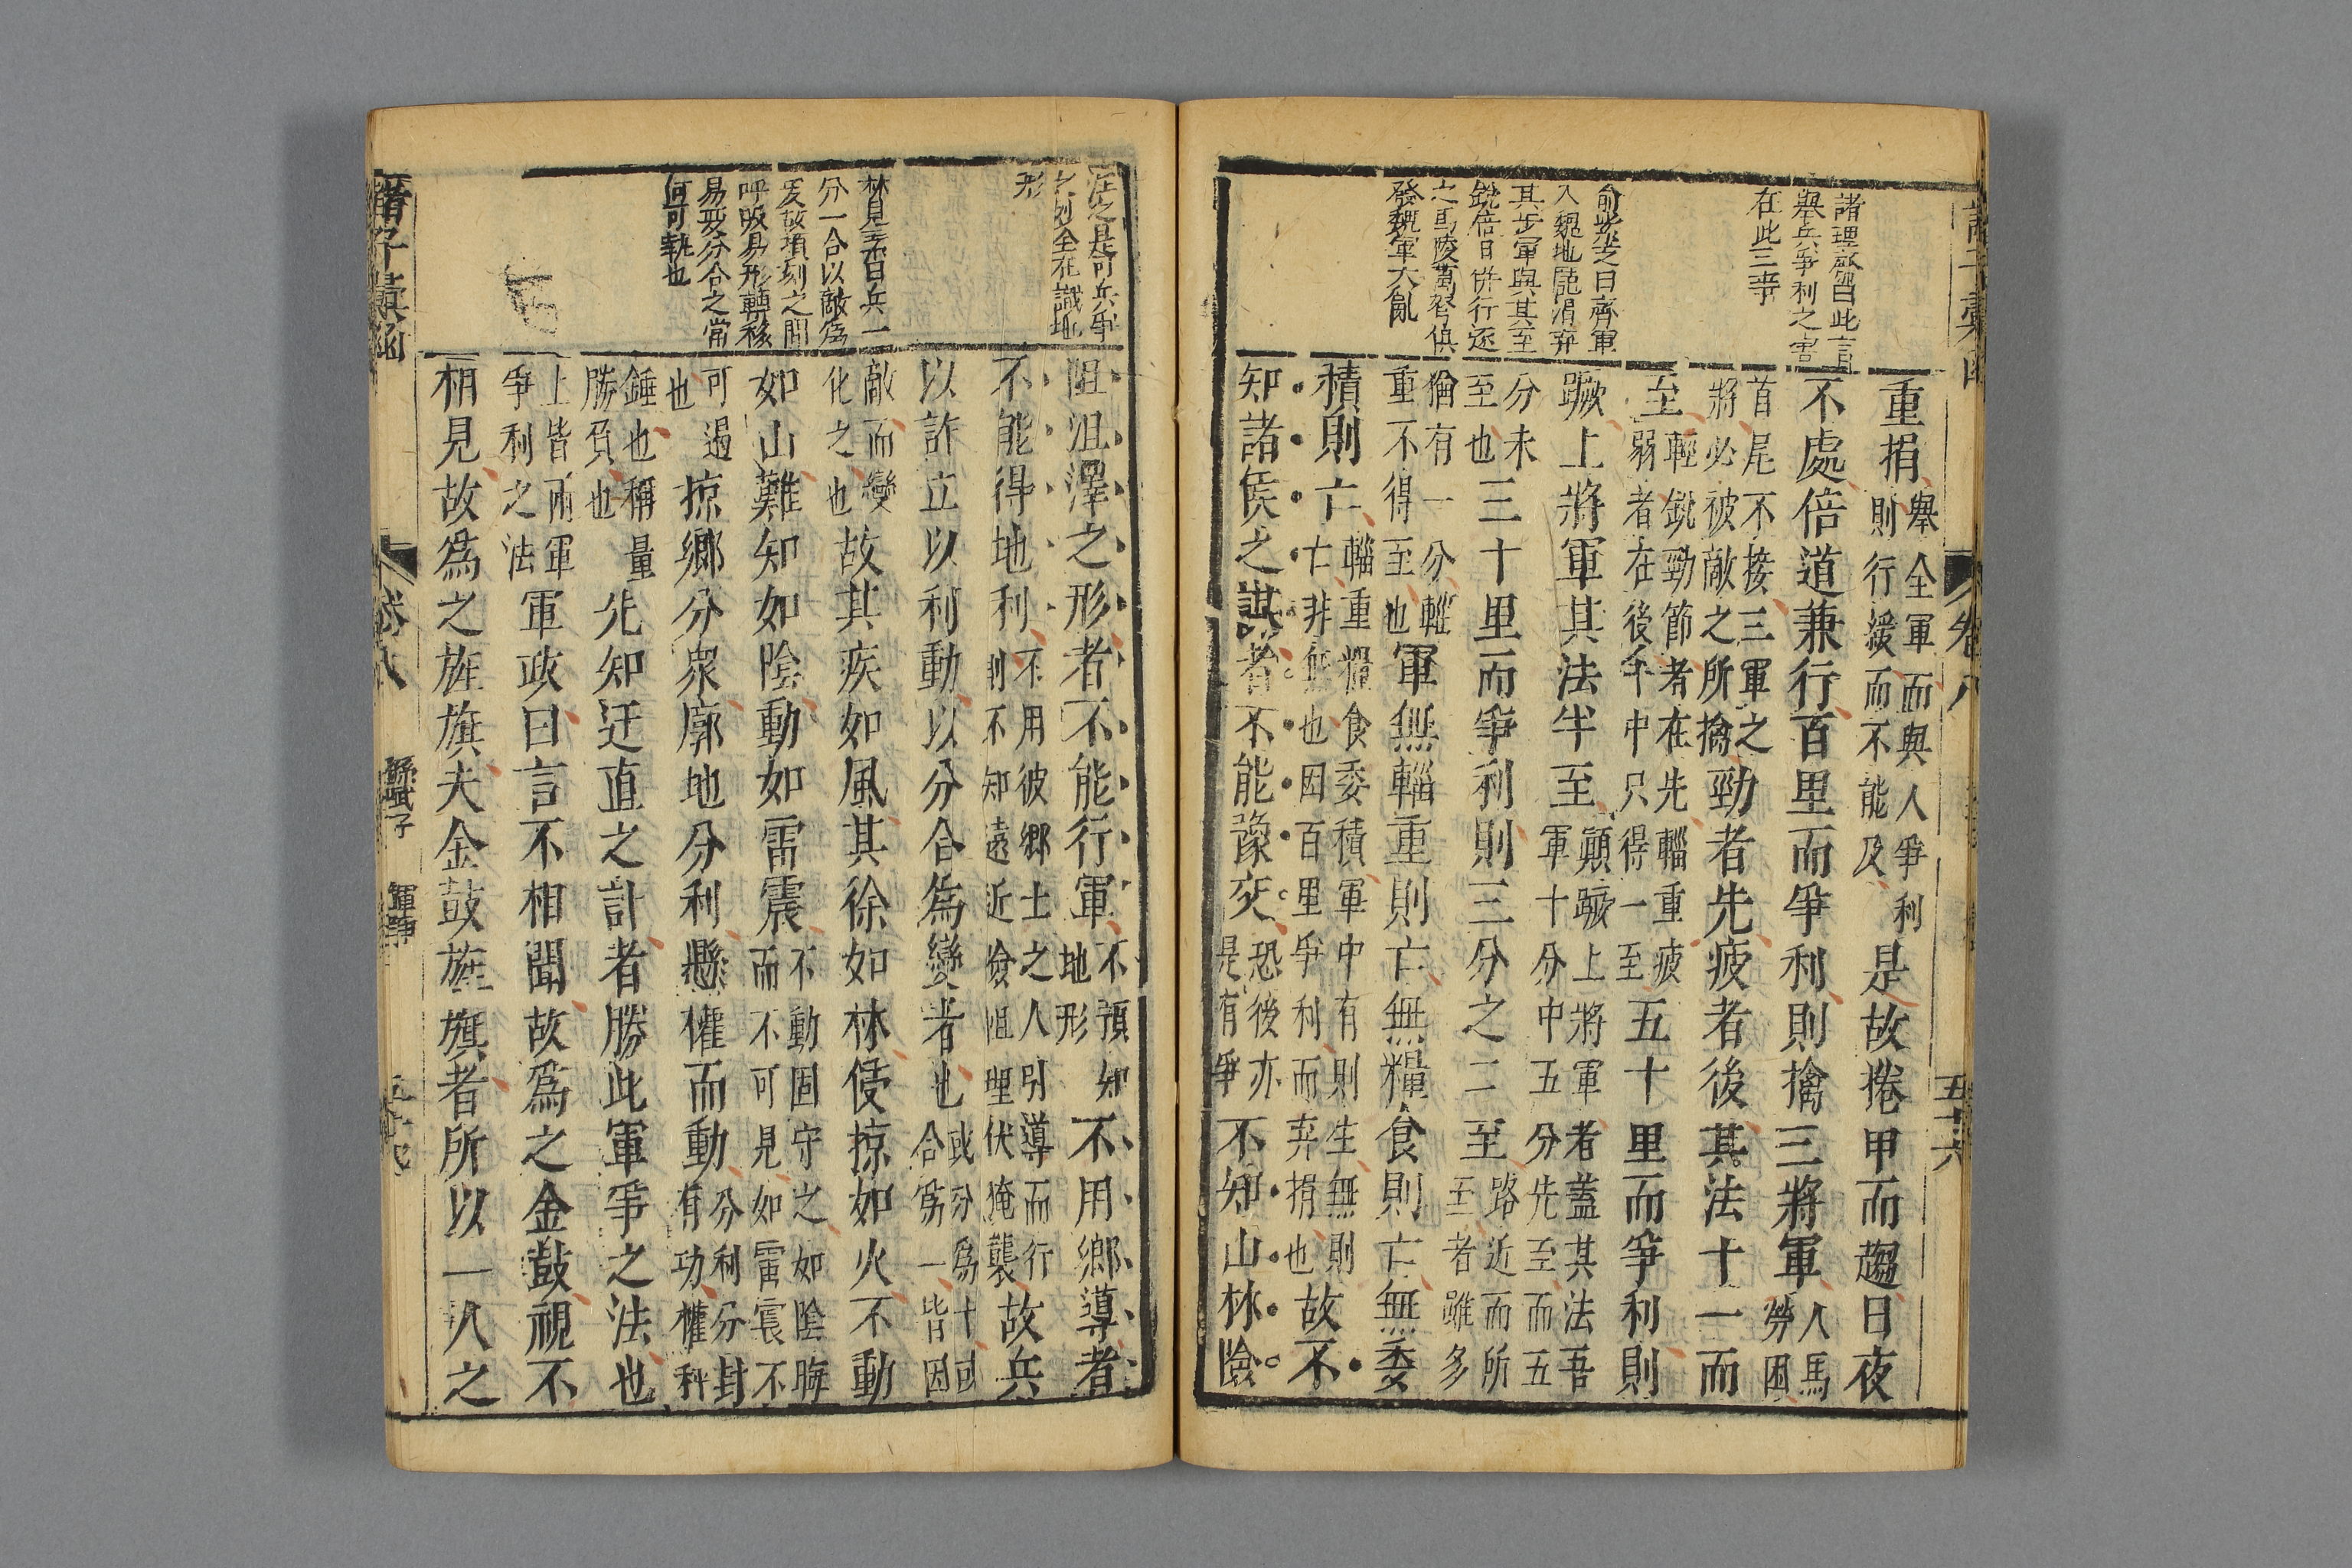 諸子彙函
卷八
五十六
諸理齋曰此言
舉兵爭利之害
在此三事
日齊軍
入魏地龐涓棄
其步軍與其至
銳倍日併行逐
之馬陵萬弩俱
發魏軍大亂
重捐舉全軍而與人爭利則行緩而不能及是故捲甲而趨日夜
不處倍道兼行百里而爭利則擒三將軍人馬勞困
首尾不接三軍之將必被敵之所擒勁者先疲者後其法十一而
至輕銳勁節者在先輜重疲弱者在後千中只得一至五十里而爭利則
蹶上將軍其法半至顛蹶上將軍者蓋其法吾軍十分中五分先至而五
分未至也三十里而爭利則三分之二至路近而所至者雖多
猶有一分輜重不得至也軍無輜重則亡無糧食則亡無委
積則亡輜重糧食委積軍中有則生無則亡非無也因百里爭利而棄捐也故不
知諸侯之謀者不能豫交恐後亦是有爭不知山林險
注之是可兵爭
之妙全在識地
形
林見素曰兵一
分一合以敵爲
變故頃刻之間
呼吸易形轉移
易變分合之當
何可執也
阻沮澤之形者不能行軍不預知地形不用鄉導者
不能得地利不用彼鄉土之人引導而行則不知遠近險阻埋伏掩襲故兵
以詐立以利動以分合爲變者也或分爲十或合爲一皆因
敵而變化之也故其疾如風其徐如林侵掠如火不動
如山難知如陰動如雷震不動固守之如陰晦而不可見如雷震不
可遏也掠鄉分衆廓地分利懸權而動分利分封有功權秤
錘也稱量勝負也先知迂直之計者勝此軍爭之法也
上皆兩軍爭利之法軍政曰言不相聞故爲之金鼓視不
相見故爲之旌旗夫金鼓旌旗者所以一人之
諸子彙函
卷八
孫武子
軍爭